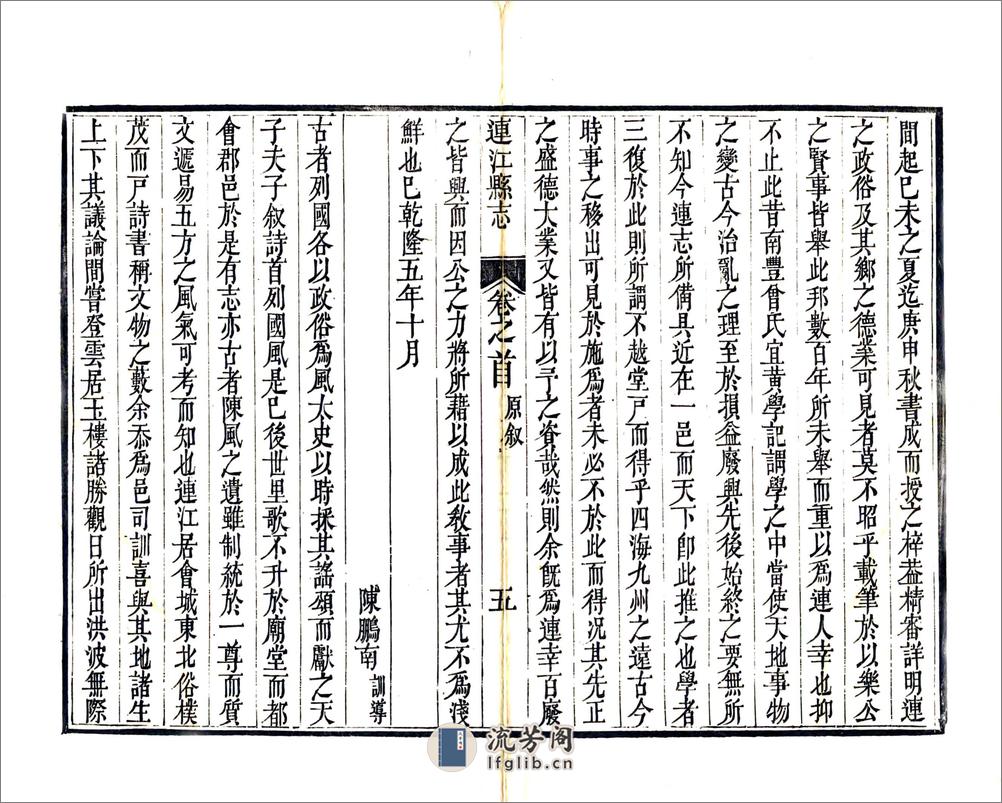 間起己未之夏迄庚申秋書成而授之梓葢精審詳明連
之政俗及其鄉之德業可見者莫不昭乎載筆於以樂公
之賢事皆舉此邦數百年所未舉而重以為連人幸也抑
不止此昔南豐曾氏宜黃學記謂學之中當使天地事物
之變古今治亂之理至於損益廢興先後始終之要無所
不知今連志所備具近在一邑而天下卽此推之也學者
三復於此則所謂不越堂戸而得乎四海九州之遠古今
時事之移出可見於施為者未必不於此而得况其先正
之盛德大業又皆有以予之眷哉然則余旣為連幸百廢
連江縣志
卷之首
原叙
五
之皆興而因公之力將所藉以成此敎事者其尤不為淺
鮮也已乾隆五年十月
陳鵬南訓導
古者列國各以政俗為風太史以時採其謠頌而獻之天
子夫子叙詩首列國風是已後世里歌不升於廟堂而都
會郡邑於是有志亦古者陳風之遺雖制統於一尊而質
文遞易五方之風氣可考而知也連江居會城東北俗樸
茂而戸詩書稱文物之藪余忝為邑司訓喜與其地諸生
上下其議論間嘗登雲居玉樓諸勝觀日所出洪波無際
流芳阁
lfglib.cn